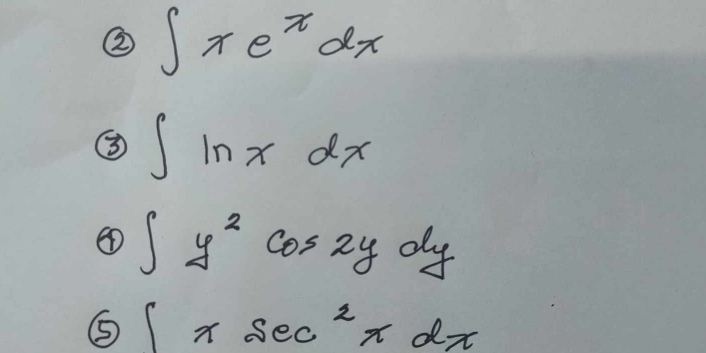 ② ∫ x e^x dx
③ ∫ ln x dx
④ ∫ y² cos 2y dy
⑤ ∫ x sec² x dx